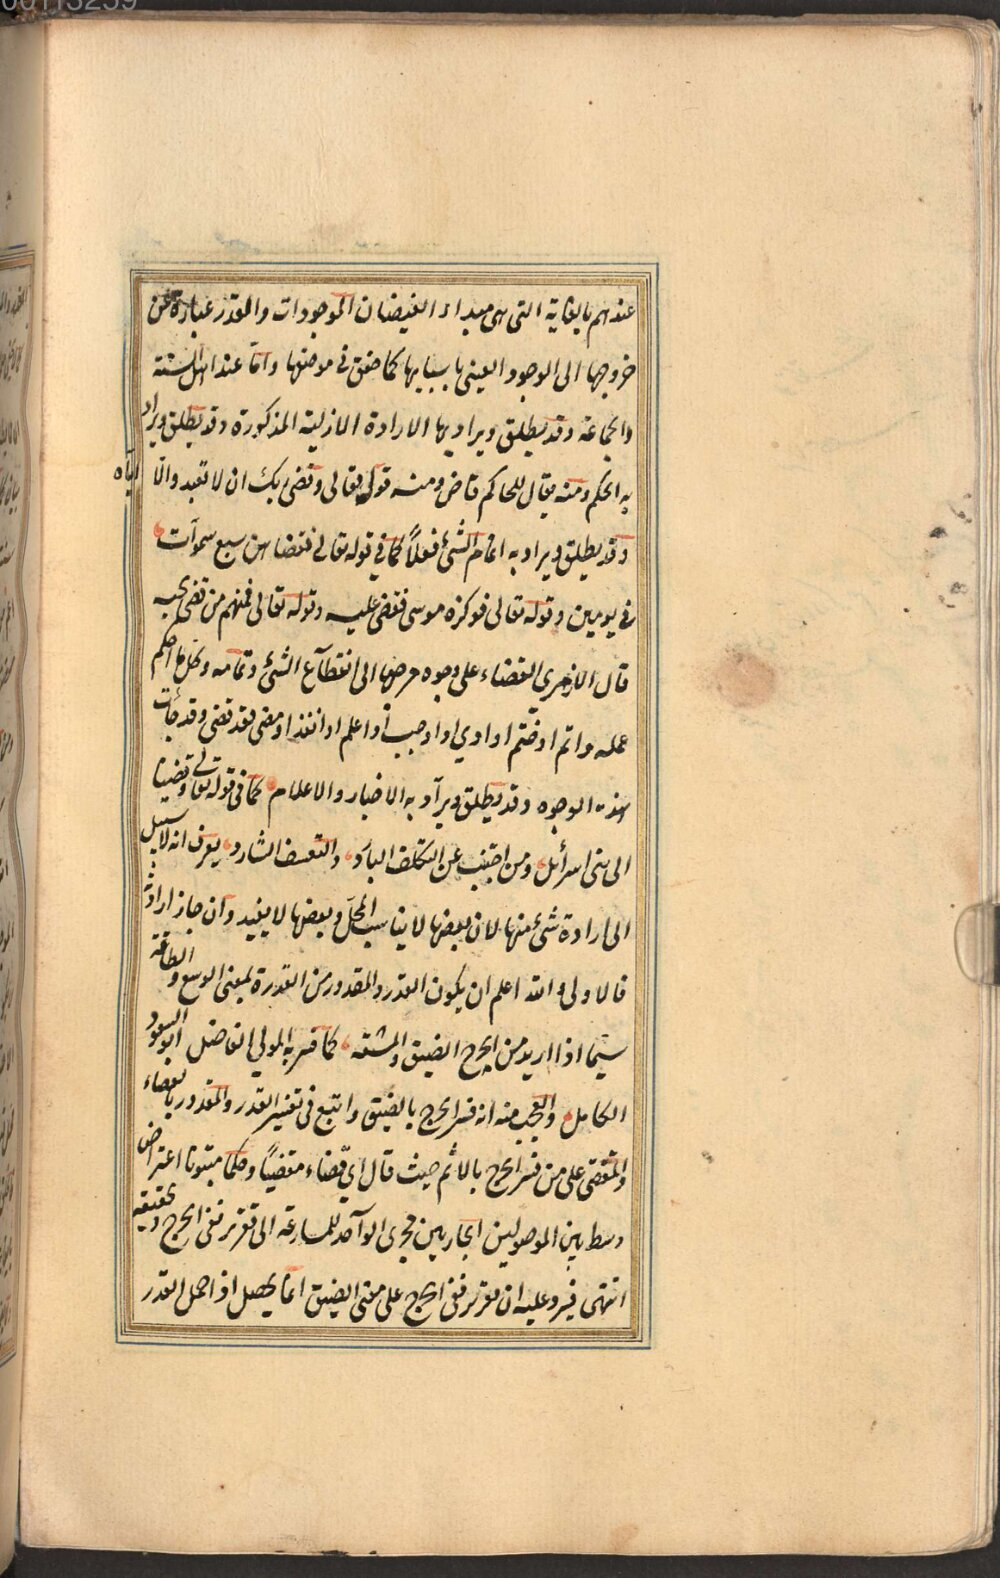 عندهم بالغاية التى هى مبداء الفيضان الموجودات والقدر عبارة عن
خروجها الى الوجود العينى باسبابها كما حقق فى موضعها واما عند اهل السنة
والجماعة وقد يطلق ويراد بها الارادة الازلية المذكورة وقد يطلق ويراد
به الحكم ومنه يقال للحاكم قاض ومنه قوله تعالى وقضى ربك ان لا تعبدوا الا اياه
وقد يطلق ويراد به اتمام الشئ فعلاً كما فى قوله تعالى فقضاهن سبع سموات
فى يومين وقوله تعالى فوكزه موسى فقضى عليه وقوله تعالى فمنهم من قضى نحبه
قال الازهرى القضاء على وجوه مرجعها الى انقطاع الشئ وتمامه وكل ما احكم
عمله واتم او ختم او ادي او اوجب او اعلم او انفذ او مضى فقد قضى وقد جأت
هذه الوجوه وقد يطلق ويراد به الاخبار والاعلام كما فى قوله تعالى وقضينا
الى بنى اسرائل ومن اجتنب عن التكلف البارد والتعسف الشارد يعرف انه لا سبيل
الى ارادة شئ منها لان بعضها لا يناسب المحل وبعضها لا يفيد وان جاز ارادته
فالاولى والله اعلم ان يكون القدر والمقدور من القدرة بمعنى الوسع والطاقة
سيما اذا اريد من الحرج الضيق والمشقه كما فسر به المولى الفاضل ابو السعود
الكامل والعجب منه انه فسر الحرج بالضيق واتبع فى تفسير القدر والمقدور بالقضاء
والمقضى على من فسر الحرج بالاثم حيث قال اي قضاء مقضياً وحكما مبتوتا اعتراض
وسط بين الموصولين الجاريين مجرى الواحد للمسارعة الى تقرير نفى الحرج وتحقيقه
انتهى فيرد عليه ان تقرير نفى الحرج على معنى الضيق انما يحصل اذا حمل القدر